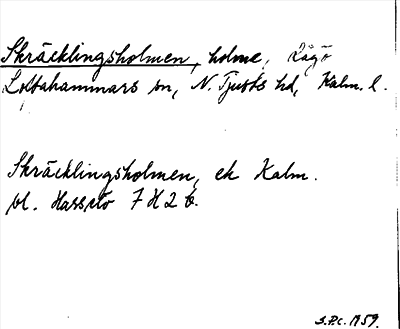 Skräcklingsholmen, holme, Rågö
Loftahammars sn, N. Tjusts hd, Kalm. l.
Skräcklingsholmen, ek Kalm.
bl. Hasselö 7 H 2 b.
S.P.C. 1959.